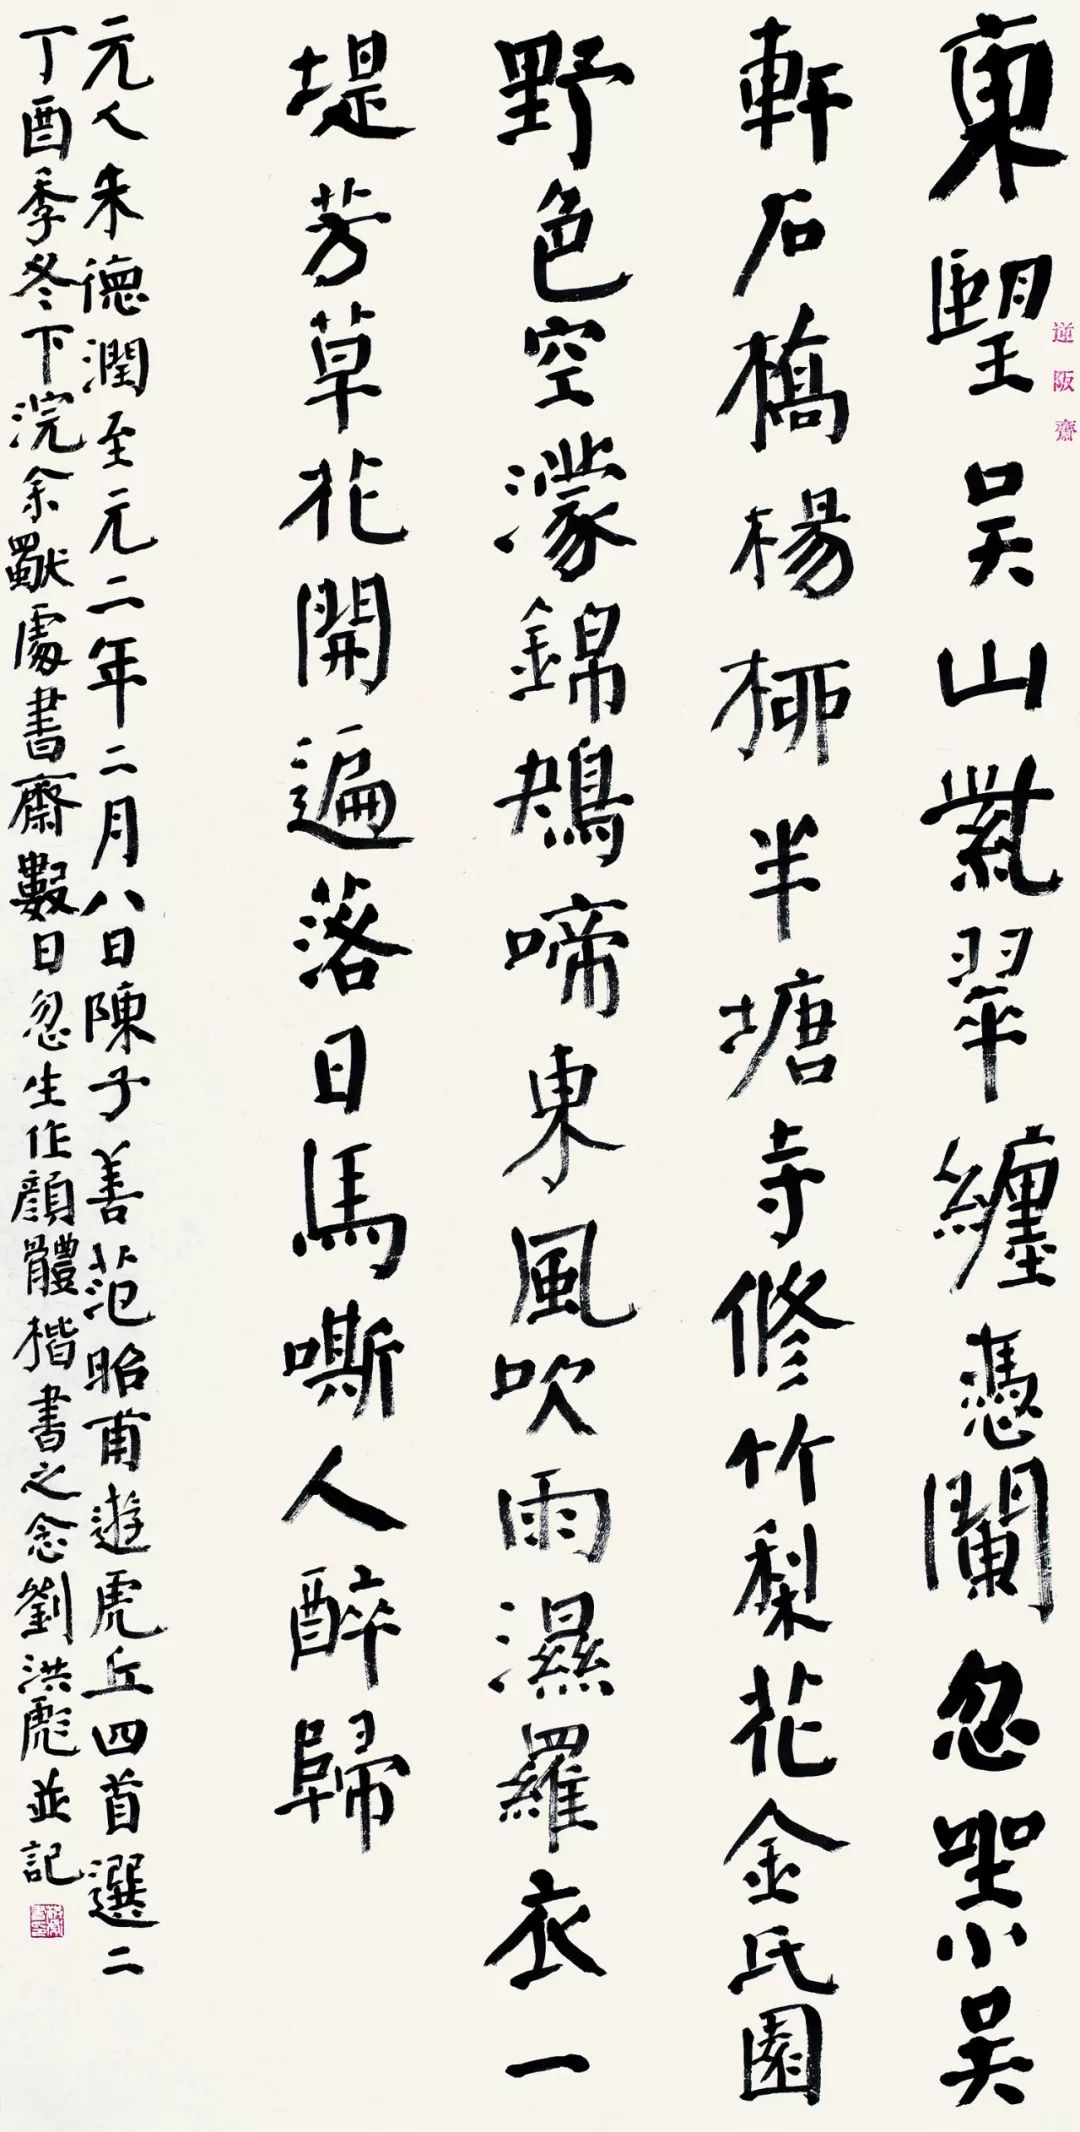 東望吳山翠纏憑闌忽小吳
軒石橋楊柳半塘寺修竹梨花金氏園
野色空濛錦鴂啼東風吹雨濕羅衣一
堤芳草花開遍落日馬嘶人醉歸
元人朱德潤至元二年二月八日陳子善范昭甫遊虎丘四首選二
丁酉季冬下浣余獨處書齋數日忽生作顏體楷書之念劉洪彪並記
逆阪齋